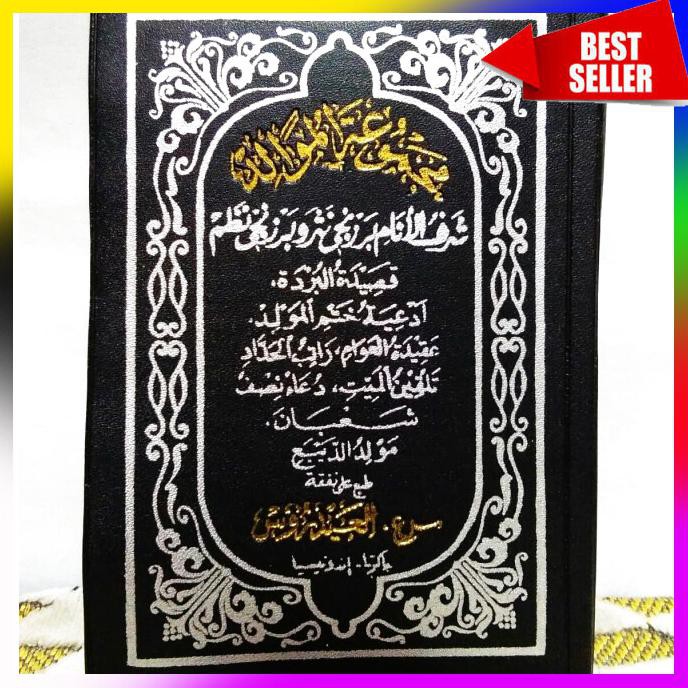 BEST
SELLER
مجموعة الموالد
شرف الأنام برزنجي نثر وبرزنجي نظم
قصيدة البردة،
أدعية ختم المولد.
عقيدة العوام، راتب الحداد
تلقين الميت، دعاء نصف
شعبان.
مولد الديبع
طبع على نفقة
س.ع. العيدروس
جاكرتا - إندونيسيا